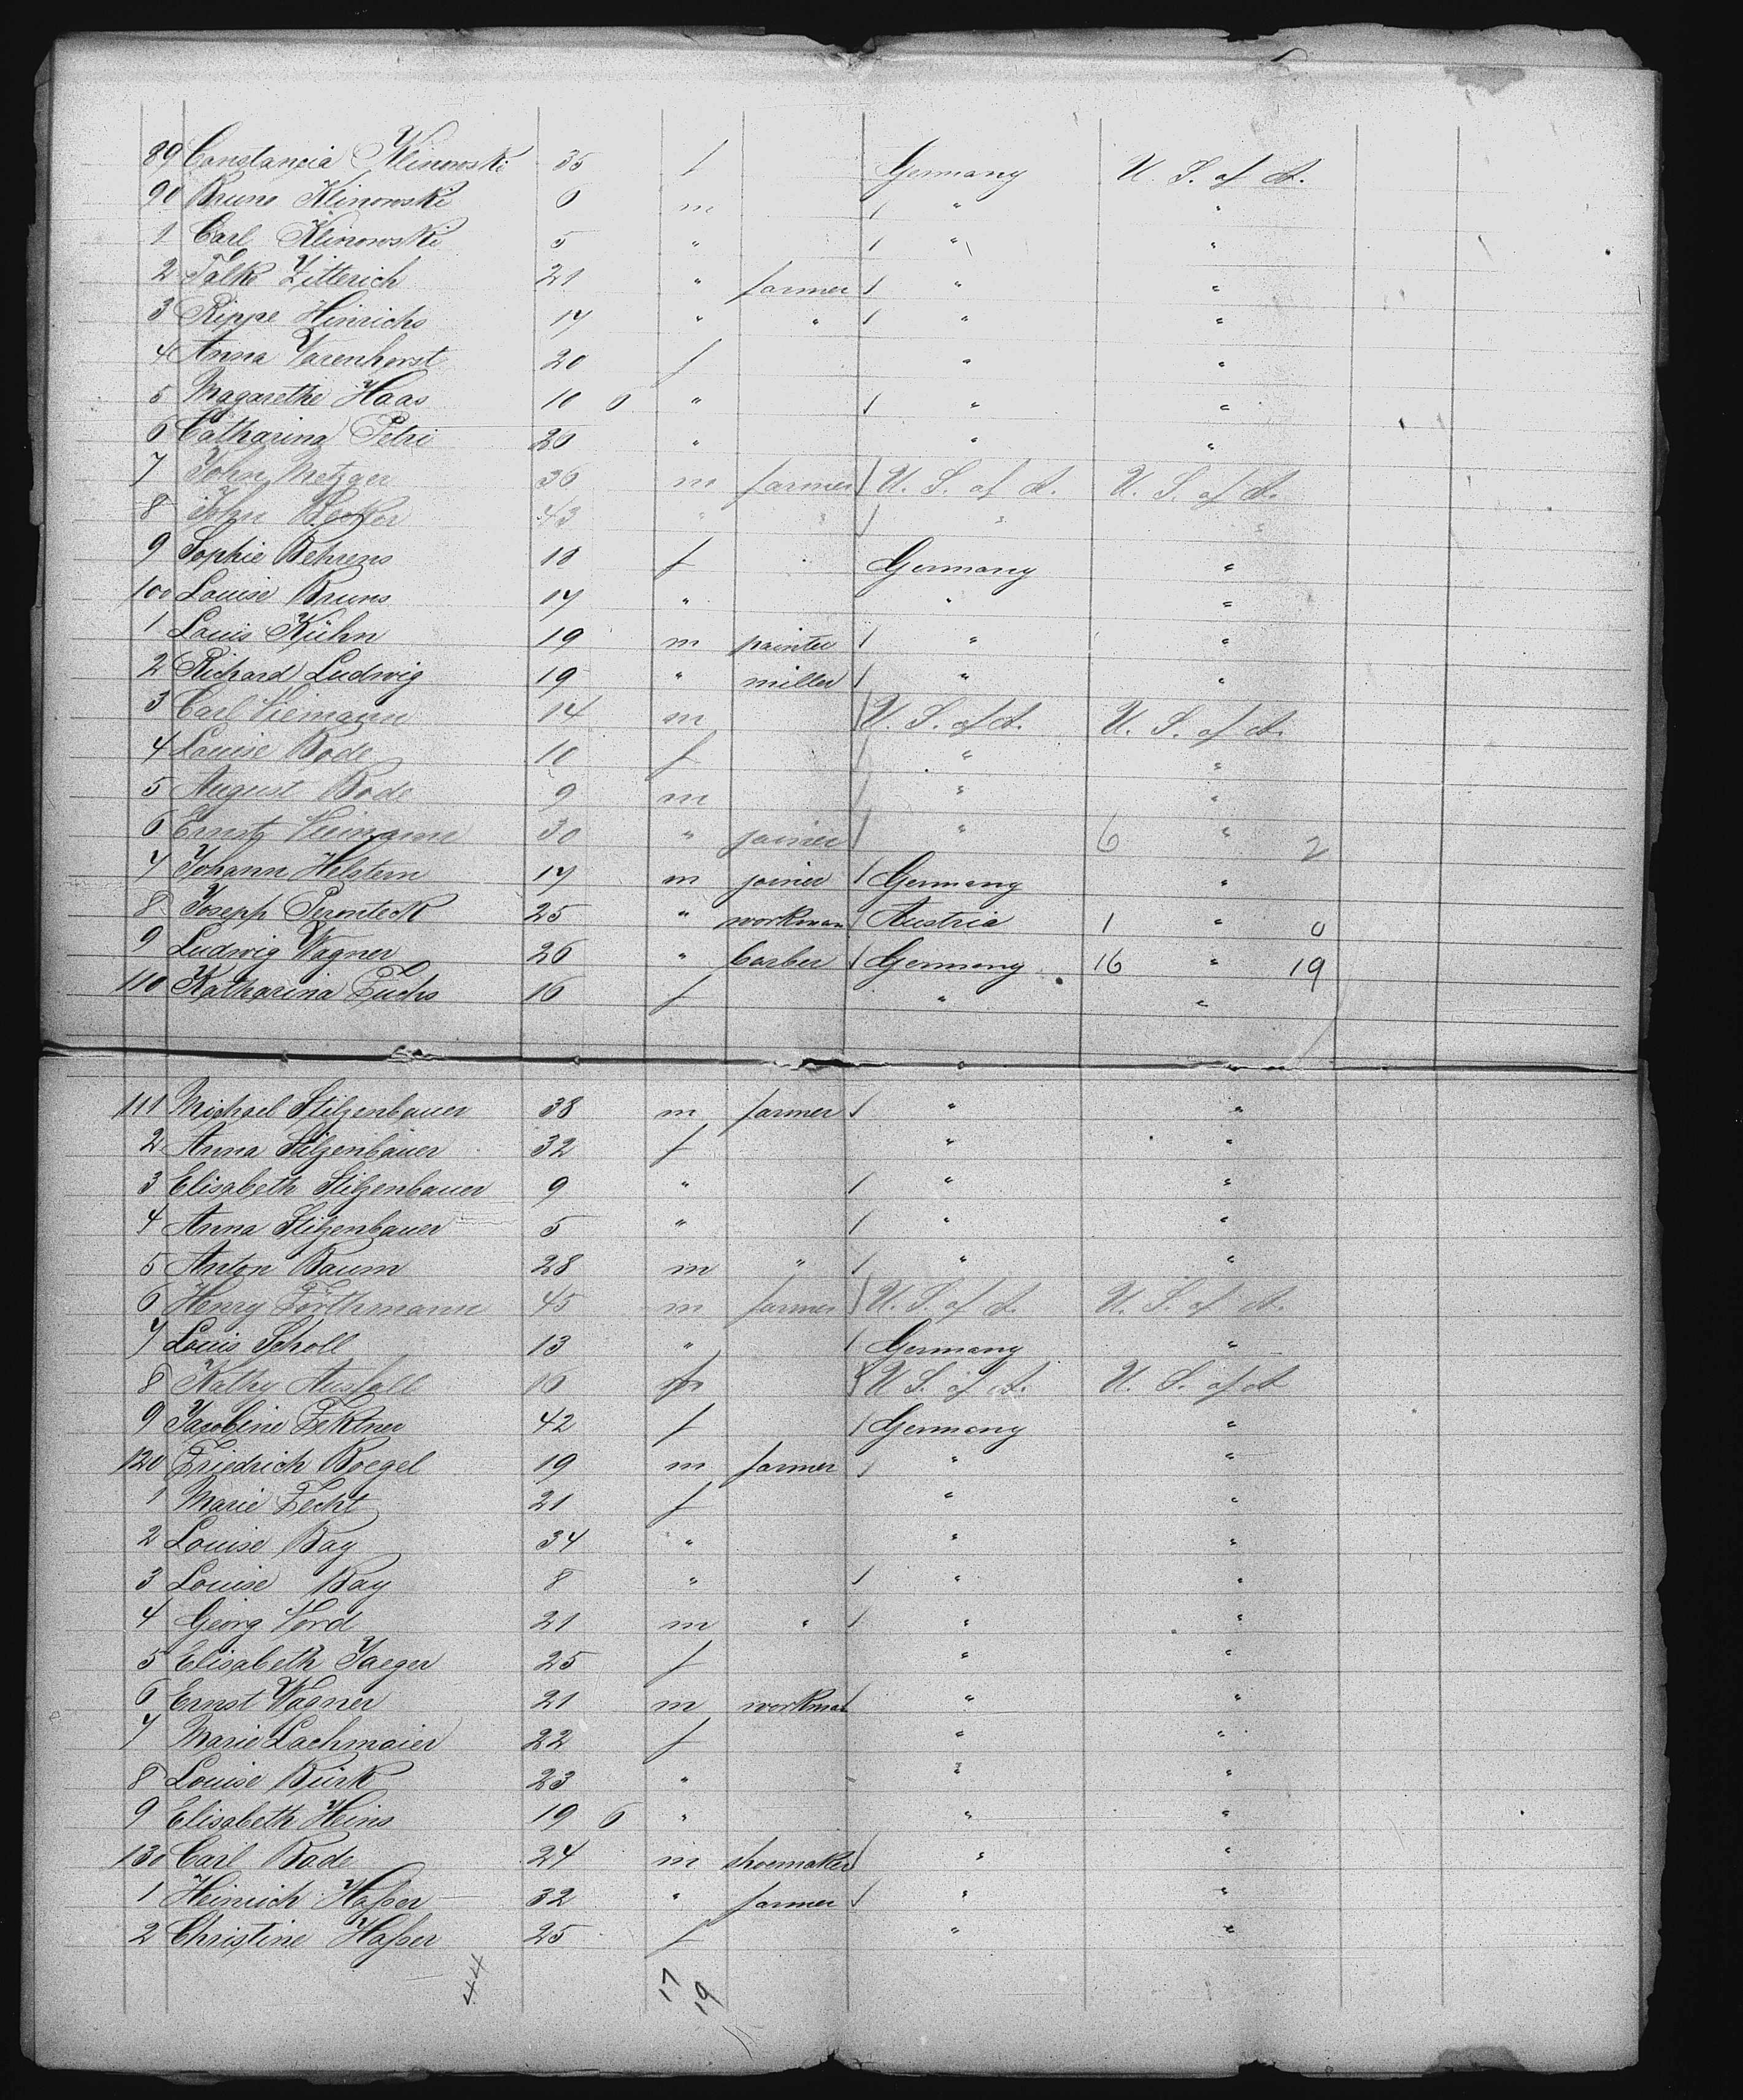 89 Constancia Klinowski 35 f Germany U. S. of A.
90 Bruno Klinowski 6 m / " "
1 Carl Klinowski 5 " / " "
2 Falke Zitterich 21 " farmer / " "
3 Rippe Hinrichs 17 " " / " "
4 Anna Varenhorst 20 f " "
5 Magarethe Haas 10 0 " / " "
6 Catharina Petri 20 " " "
7 John Metzger 36 m farmer / U. S. of A. U. S. of A.
8 John 43 " " / " "
9 Sophie Behrens 18 f Germany "
100 Louise Bruns 17 " " "
1 Louis Kühn 19 m painter / " "
2 Richard Ludwig 19 " miller / " "
3 Carl Viemann 14 m / U. S. of A. U. S. of A.
4 Louise Bode 10 f / " "
5 August Bode 9 m / " "
6 Ernst 30 " joiner / " 6 " 2
7 Johann Helstern 17 m joiner / Germany "
8 Joseph 25 " workman / Austria 1 " 0
9 Ludwig Wagner 26 " barber / Germany 16 " 19
110 Katharina Fuchs 16 f " "
111 Michael Stilzenbauer 38 m farmer / " "
2 Anna Stilzenbauer 32 f " "
3 Elisabeth Stilzenbauer 9 " / " "
4 Anna Stilzenbauer 5 " / " "
5 Anton Baum 28 m " / " "
6 Henry Förthmann 45 m farmer / U. S. of A. U. S. of A.
7 Louis Scholl 13 " / Germany "
8 Kathy Ausfall 16 U. S. of A. U. S. of A
9 Jacobine Fektner 42 f / Germany "
120 Friedrich Boegel 19 m farmer / " "
1 Marie Fecht 21 f " "
2 Louise Bay 34 " " "
3 Louise Bay 8 " / " "
4 Georg Vord 21 m " / " "
5 Elisabeth Jaeger 25 f " "
6 Ernst Wagner 21 m workman " "
7 Marie Lachmaier 22 f " "
8 Louise Bürk 23 " " "
9 Elisabeth Heins 19 6 " " "
130 Carl Bade 24 m shoemaker / " "
1 Heinrich Hafser 32 " farmer / " "
2 Christine Hafser 25 f " "
44 17 19